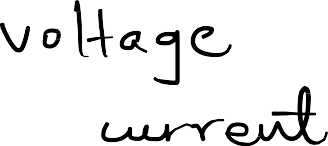 voltage
current